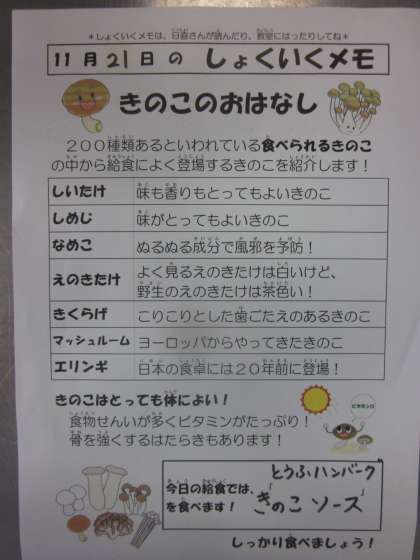 ＊しょくいくメモは、日直さんが読んだり、教室にはったりしてね＊
11月21日の しょくいくメモ
きのこのおはなし
２００種類あるといわれている食べられるきのこ
の中から給食によく登場するきのこを紹介します！
しいたけ 味も香りもとってもよいきのこ
しめじ 味がとってもよいきのこ
なめこ ぬるぬる成分で風邪を予防！
えのきたけ よく見るえのきたけは白いけど、
野生のえのきたけは茶色い！
きくらげ こりこりとした歯ごたえのあるきのこ
マッシュルーム ヨーロッパからやってきたきのこ
エリンギ 日本の食卓には２０年前に登場！
きのこはとっても体によい！
食物せんいが多くビタミンがたっぷり！
骨を強くするはたらきもあります！
ビタミンＤ
今日の給食では、
を食べます！
とうふハンバーグ
「きのこソース」
しっかり食べましょう！